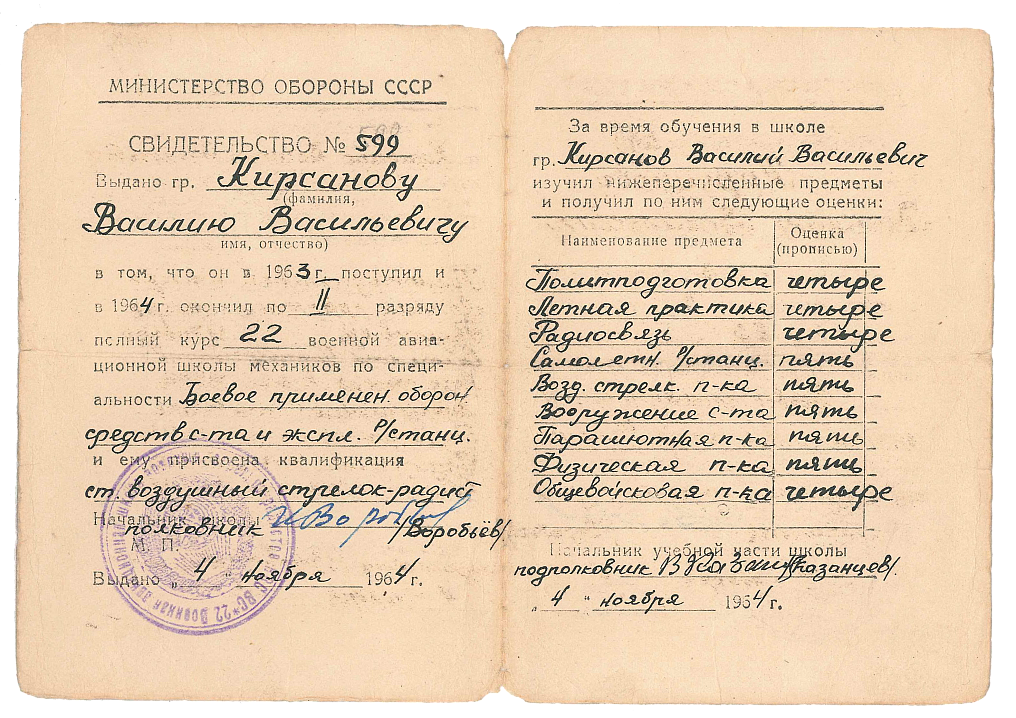 МИНИСТЕРСТВО ОБОРОНЫ СССР
СВИДЕТЕЛЬСТВО № 599
Выдано гр. Кирсанову
(фамилия,
Василию Васильевичу
имя, отчество)
в том, что он в 1963 г. поступил и
в 1964 г. окончил по II разряду
полный курс 22 военной авиа-
ционной школы механиков по специ-
альности Боевое применен. оборон
средств с-та и экспл. р/станц.
и ему присвоена квалификация
ст. воздушный стрелок-радист
Начальник школы
полковник /Воробьёв/
М. П.
Выдано „ 4 " ноября 1964 г.
За время обучения в школе
гр. Кирсанов Василий Васильевич
изучил нижеперечисленные предметы
и получил по ним следующие оценки:
Наименование предмета Оценка (прописью)
Политподготовка четыре
Летная практика четыре
Радиосвязь четыре
Самолетн. р/станц. пять
Возд. стрелк. п-ка пять
Вооружение с-та пять
Парашютная п-ка пять
Физическая п-ка пять
Общевойсковая п-ка четыре
Начальник учебной части школы
подполковник /Казанцев/
„ 4 " ноября 1964 г.